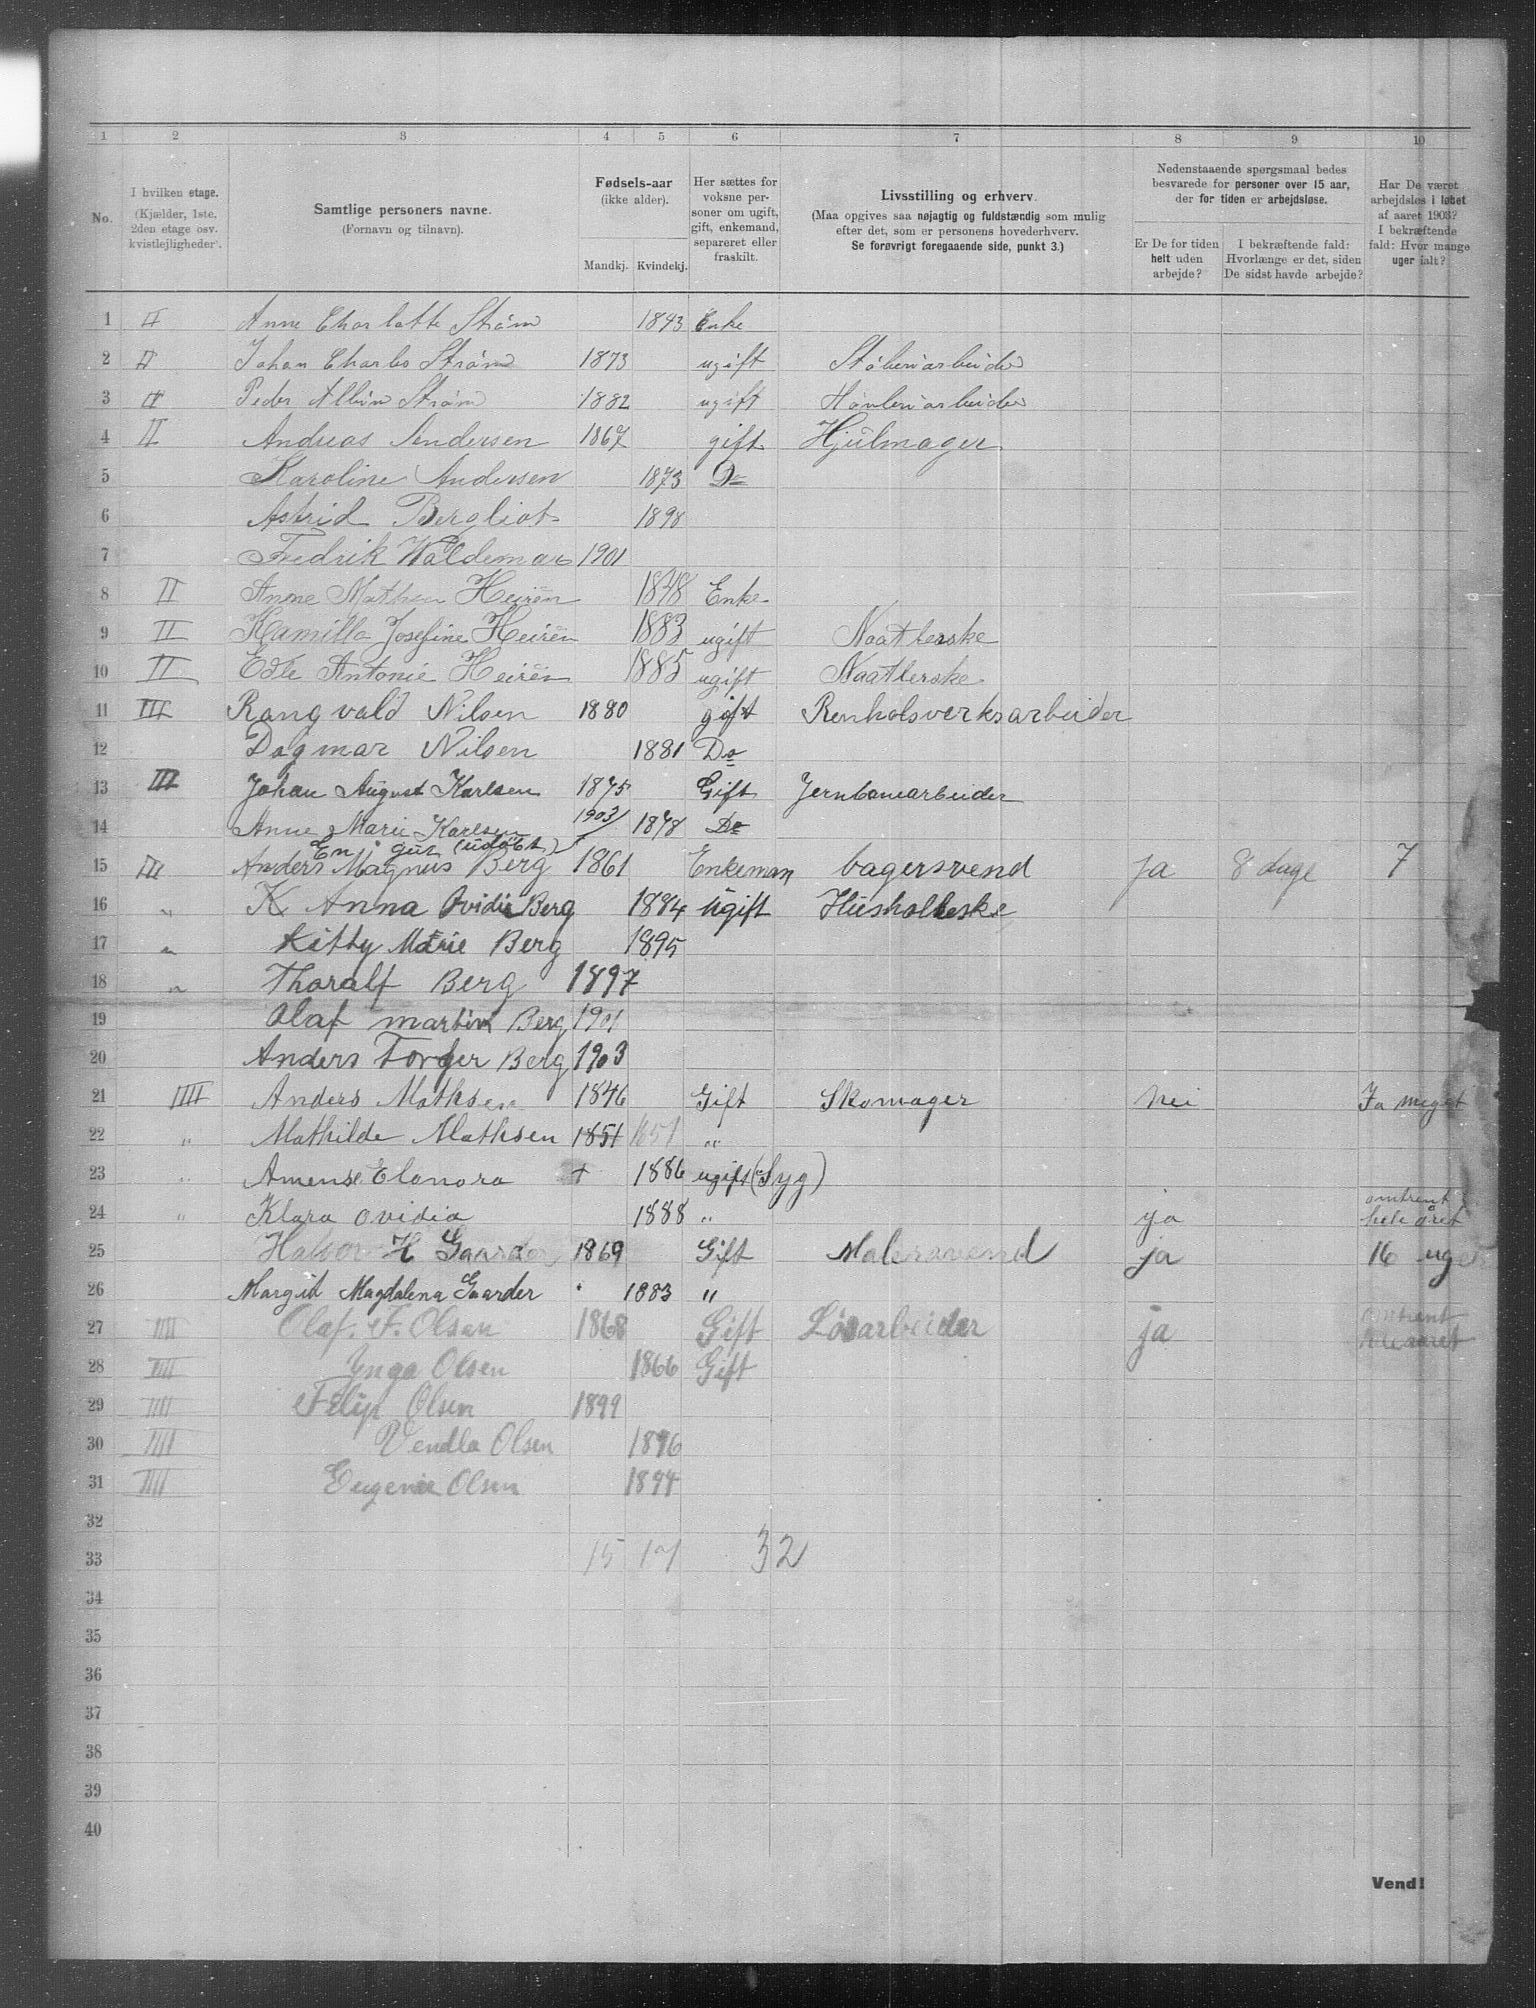 1 2 3 4 5 6 7 8 9 10
No.
I hvilken etage. (Kjælder, 1ste, 2den etage osv. kvistlejligheder).
Samtlige personers navne. (Fornavn og tilnavn).
Fødsels-aar (ikke alder).
Mandkj. Kvindekj.
Her sættes for voksne personer om ugift, gift, enkemand, separeret eller fraskilt.
Livsstilling og erhverv. (Maa opgives saa nøjagtig og fuldstændig som mulig efter det, som er personens hovederhverv. Se forøvrigt foregaaende side, punkt 3.)
Nedenstaaende spørgsmaal bedes besvarede for personer over 15 aar, der for tiden er arbejdsløse.
Er De for tiden helt uden arbejde?
I bekræftende fald: Hvorlænge er det, siden De sidst havde arbejde?
Har De været arbejdsløs i løbet af aaret 1903? I bekræftende fald: Hvor mange uger ialt?
1 II Anne Charlotte Strøm 1843 Enke
2 II Johan Charles Strøm 1873 ugift Støberiarbeider
3 II Peder Albin Strøm 1882 ugift Høvleriarbeider
4 II Andreas Andersen 1867 gift Hjulmager
5 Karoline Andersen 1873 Do
6 Astrid Bergliot 1898
7 Fredrik Waldemar 1901
8 II Anne Mathea Heirèn 1848 Enke
9 II Kamilla Josefine Heirèn 1883 ugift Naatlerske
10 II Edle Antonie Heirèn 1885 ugift Naatlerske
11 III Rangvald Nilsen 1880 gift Renholsverksarbeider
12 Dagmar Nilsen 1881 Do
13 III Johan August Karlsen 1875 Gift Jernbanearbeider
14 Anne Marie Karlsen 1903 1878 Do
En gut (udøbt)
15 III Anders Magnus Berg 1861 Enkeman bagersvend ja 8 dage 7
16 " K Anna Ovidie Berg 1884 Ugift Husholleske
17 " Kitty Marie Berg 1895
18 " Thoralf Berg 1897
19 Olaf martin Berg 1901
20 Anders Torger Berg 1903
21 IIII Anders Mathsen 1846 Gift Skomager nei Ja meget
22 " Mathilde Mathsen 1851 1851 "
23 " Amense Elonora + 1886 ugift (Syg)
24 " Klara Ovidia 1888 " ja omtrent hele året
25 Halvor H Gaarder 1869 Gift Malersvend ja 16 uger
26 Margit Magdalena Gaarder 1883 "
27 IIII Olaf. F. Olsen 1868 Gift Løsarbeider ja omtrent hele aaret
28 IIII Ynga Olsen 1866 Gift
29 IIII Filip Olsen 1899
30 IIII Vendla Olsen 1896
31 IIII Eugenie Olsen 1894
32
33 15 17 32
34
35
36
37
38
39
40
Vend!